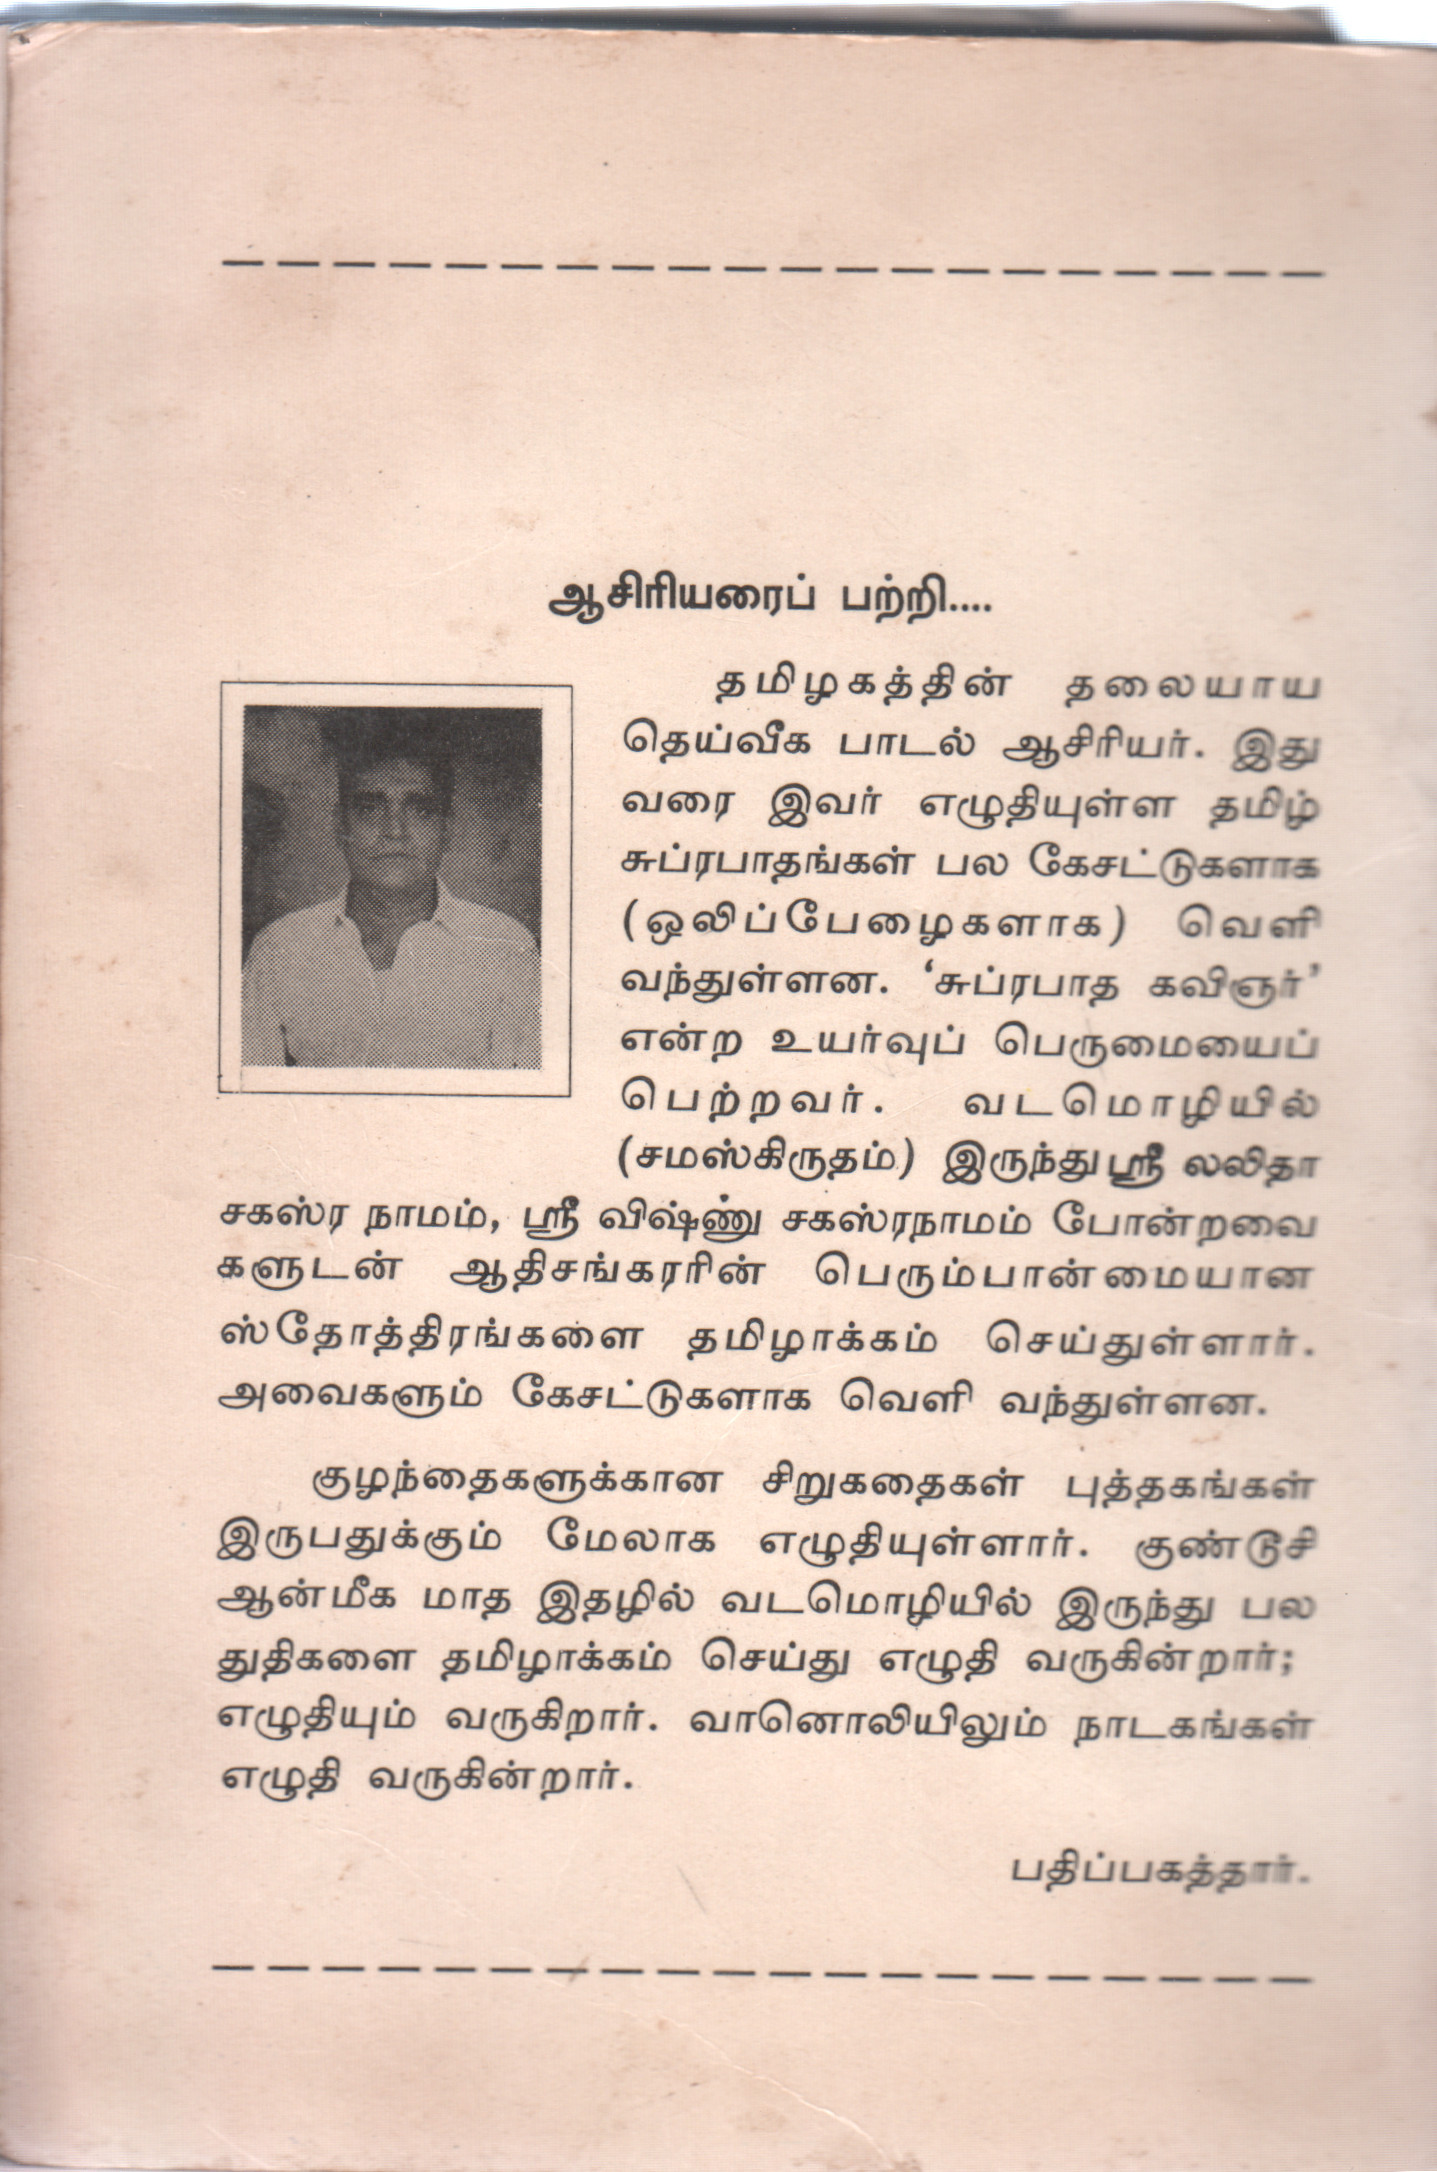 ஆசிரியரைப் பற்றி....
தமிழகத்தின் தலையாய
தெய்வீக பாடல் ஆசிரியர். இது
வரை இவர் எழுதியுள்ள தமிழ்
சுப்ரபாதங்கள் பல கேசட்டுகளாக
(ஒலிப்பேழைகளாக) வெளி
வந்துள்ளன. ‘சுப்ரபாத கவிஞர்’
என்ற உயர்வுப் பெருமையைப்
பெற்றவர். வடமொழியில்
(சமஸ்கிருதம்) இருந்து ஸ்ரீ லலிதா
சகஸ்ர நாமம், ஸ்ரீ விஷ்ணு சகஸ்ரநாமம் போன்றவை
களுடன் ஆதிசங்கரரின் பெரும்பான்மையான
ஸ்தோத்திரங்களை தமிழாக்கம் செய்துள்ளார்.
அவைகளும் கேசட்டுகளாக வெளி வந்துள்ளன.
குழந்தைகளுக்கான சிறுகதைகள் புத்தகங்கள்
இருபதுக்கும் மேலாக எழுதியுள்ளார். குண்டூசி
ஆன்மீக மாத இதழில் வடமொழியில் இருந்து பல
துதிகளை தமிழாக்கம் செய்து எழுதி வருகின்றார்;
எழுதியும் வருகிறார். வானொலியிலும் நாடகங்கள்
எழுதி வருகின்றார்.
பதிப்பகத்தார்.